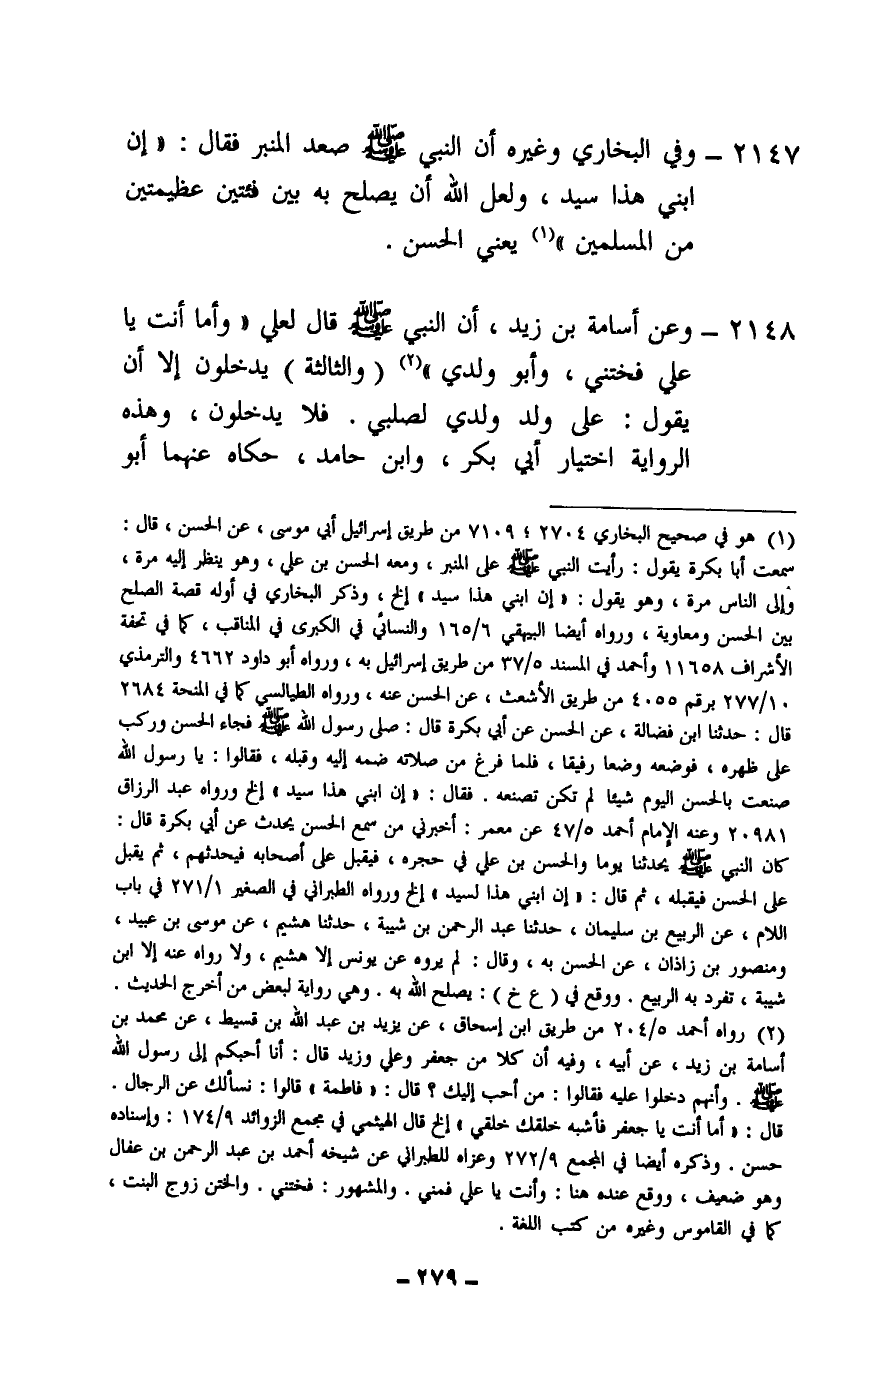 ٢١٤٧ ــ وفي البخاري وغيره أن النبي ﷺ صعد المنبر فقال : « إن
ابني هذا سيد ، ولعل الله أن يصلح به بين فئتين عظيمتين
من المسلمين »(١) يعني الحسن .
٢١٤٨ ــ وعن أسامة بن زيد ، أن النبي ﷺ قال لعلي « وأما أنت يا
علي فختني ، وأبو ولدي »(٢) ( والثالثة ) يدخلون إلا أن
يقول : على ولد ولدي لصلبي . فلا يدخلون ، وهذه
الرواية اختيار أبي بكر ، وابن حامد ، حكاه عنهما أبو
(١) هو في صحيح البخاري ٢٧٠٤ ؛ ٧١٠٩ من طريق إسرائيل أبي موسى ، عن الحسن ، قال :
سمعت أبا بكرة يقول : رأيت النبي ﷺ على المنبر ، ومعه الحسن بن علي ، وهو ينظر إليه مرة ،
وإلى الناس مرة ، وهو يقول : « إن ابني هذا سيد » إلخ ، وذكر البخاري في أوله قصة الصلح
بين الحسن ومعاوية ، ورواه أيضا البيهقي ١٦٥/٦ والنسائي في الكبرى في المناقب ، كما في تحفة
الأشراف ١١٦٥٨ وأحمد في المسند ٣٧/٥ من طريق إسرائيل به ، ورواه أبو داود ٤٦٦٢ والترمذي
٢٧٧/١٠ برقم ٤٠٥٥ من طريق الأشعث ، عن الحسن عنه ، ورواه الطيالسي كما في المنحة ٢٦٨٤
قال : حدثنا ابن فضالة ، عن الحسن عن أبي بكرة قال : صلى رسول الله ﷺ فجاء الحسن وركب
على ظهره ، فوضعه وضعا رفيقا ، فلما فرغ من صلاته ضمه إليه وقبله ، فقالوا : يا رسول الله
صنعت بالحسن اليوم شيئا لم تكن تصنعه . فقال : « إن ابني هذا سيد » إلخ ورواه عبد الرزاق
٢٠٩٨١ وعنه الإمام أحمد ٤٧/٥ عن معمر : أخبرني من سمع الحسن يحدث عن أبي بكرة قال :
كان النبي ﷺ يحدثنا يوما والحسن بن علي في حجره ، فيقبل على أصحابه فيحدثهم ، ثم يقبل
على الحسن فيقبله ، ثم قال : « إن ابني هذا لسيد » إلخ ورواه الطبراني في الصغير ٢٧١/١ في باب
اللام ، عن الربيع بن سليمان ، حدثنا عبد الرحمن بن شيبة ، حدثنا هشيم ، عن موسى بن عبيد ،
ومنصور بن زاذان ، عن الحسن به ، وقال : لم يروه عن يونس إلا هشيم ، ولا رواه عنه إلا ابن
شيبة ، تفرد به الربيع . ووقع في ( ع خ ) : يصلح الله به . وهي رواية لبعض من أخرج الحديث .
(٢) رواه أحمد ٢٠٤/٥ من طريق ابن إسحاق ، عن يزيد بن عبد الله بن قسيط ، عن محمد بن
أسامة بن زيد ، عن أبيه ، وفيه أن كلا من جعفر وعلي وزيد قال : أنا أحبكم إلى رسول الله
ﷺ . وأنهم دخلوا عليه فقالوا : من أحب إليك ؟ قال : « فاطمة » قالوا : نسألك عن الرجال .
قال : « أما أنت يا جعفر فأشبه خلقك خلقي » إلخ قال الهيثمي في مجمع الزوائد ١٧٤/٩ : وإسناده
حسن . وذكره أيضا في المجمع ٢٧٢/٩ وعزاه للطبراني عن شيخه أحمد بن عبد الرحمن بن عفال
وهو ضعيف ، ووقع عنده هنا : وأنت يا علي فمني . والمشهور : فختني . والختن زوج البنت ،
كما في القاموس وغيره من كتب اللغة .
ــ ٢٧٩ ــ